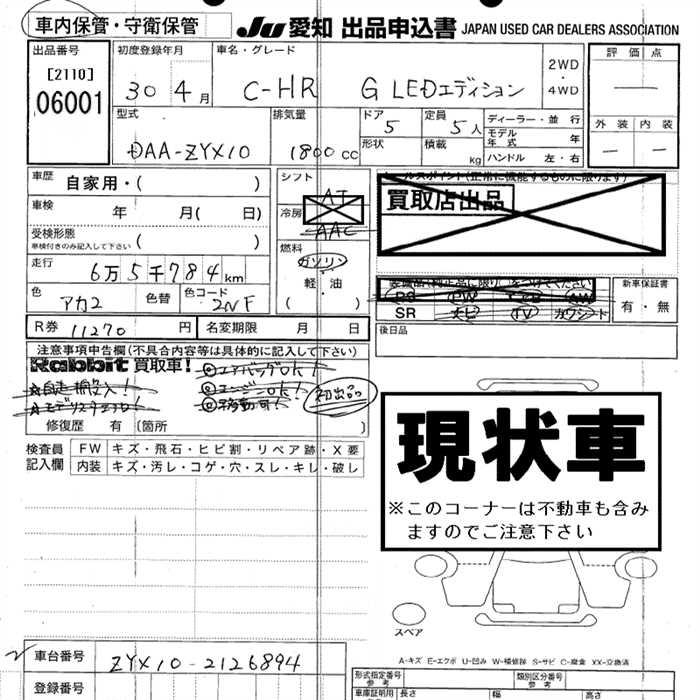 車内保管・守衛保管
JU 愛知 出品申込書 JAPAN USED CAR DEALERS ASSOCIATION
出品番号
[2110]
06001
初度登録年月
30 4月
車名・グレード
C-HR G LEDエディション
2WD
・
4WD
評価点
外装 内装
型式
DAA-ZYX10
排気量
1800cc
ドア
5
形状
定員
5人
積載
kg
ディーラー・並行
モデル年式 年
ハンドル 左・右
車歴
自家用・( )
車検
年 月( 日)
受検形態
車検付きのみ記入して下さい ( )
走行
6万5千784km
色
アカ2
色替
色コード
2NF
R券 11270 円
名変期限 月 日
シフト
AT
冷房
AAC
燃料
ガソリン
軽・油
( )
セールスポイント(正常に機能するものに限ります)
買取店出品
装備品(純正品に限り)をつけてください
PS PW エアB AW
SR ナビ TV カワシート
新車保証書
有・無
後日品
注意事項申告欄(不具合内容等は具体的に記入して下さい)
Rabbit 買取車!
☆自走搬入!
◎エアバッグOK!
◎エンジンOK!
◎移動可!
初出品
修復歴 有(箇所 )
検査員記入欄
FW キズ・飛石・ヒビ割・リペア跡・X要
内装 キズ・汚レ・コゲ・穴・スレ・キレ・破し
現状車
※このコーナーは不動車も含み
ますのでご注意下さい
スペア
A-キズ E-エクボ U-凹み W-補修跡 S-サビ C-腐食 XX-交換済
車台番号
ZYX10-2126894
登録番号
形式指定番号
参考
類別区分番号
参考
車庫証明用
参考
長さ 幅 高さ